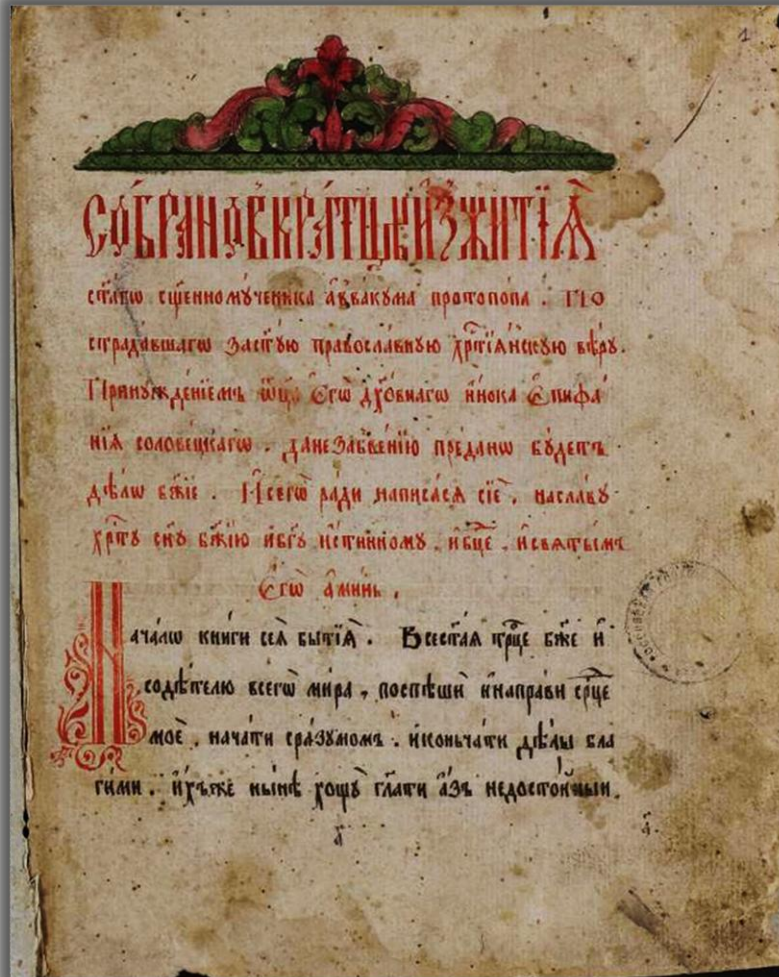 1
СОБРАНО ВКРАТЦѢ ИЗ ЖИТІѦ
ст҃а́гѡ сщ҃енномꙋ́ченика а҆ввакꙋ́ма протопо́па . По
страда́вшагѡ за ст҃ꙋ́ю правосла́внꙋю хр҃тїѧ́нскꙋю вѣ́рꙋ .
Принꙋжде́нїемъ ѻ҆ц҃а̀ Є҆гѡ̀ дх҃о́внагѡ и҆́нока Є҆пифа́
нїѧ солове́цкагѡ . да не забве́нїю пре́данѡ бꙋ́детъ
дѣ́лѡ бж҃їе . И҆ сегѡ̀ ра́ди написа́сѧ сїѐ , на сла́вꙋ
хр҃тꙋ̀ сн҃ꙋ бж҃їю и҆ бг҃ꙋ и҆́стинномꙋ , и҆ бц҃ѣ , и҆ свѧты́мъ
Є҆гѡ̀ а҆ми́нь .
Нача́лѡ кни́ги сеѧ̀ бытїѧ̀ . Всест҃а́ѧ трⷪ҇це бж҃е и҆
содѣ́телю всегѡ̀ ми́ра , поспѣшѝ и҆ напра́ви срⷣце
моѐ , нача́ти сра́зꙋмомъ . и҆ конча́ти дѣ́лы бла
ги́ми . и҆́хъже ны́нѣ хощꙋ̀ гл҃ати а҆́зъ недосто́йныи .
а҃